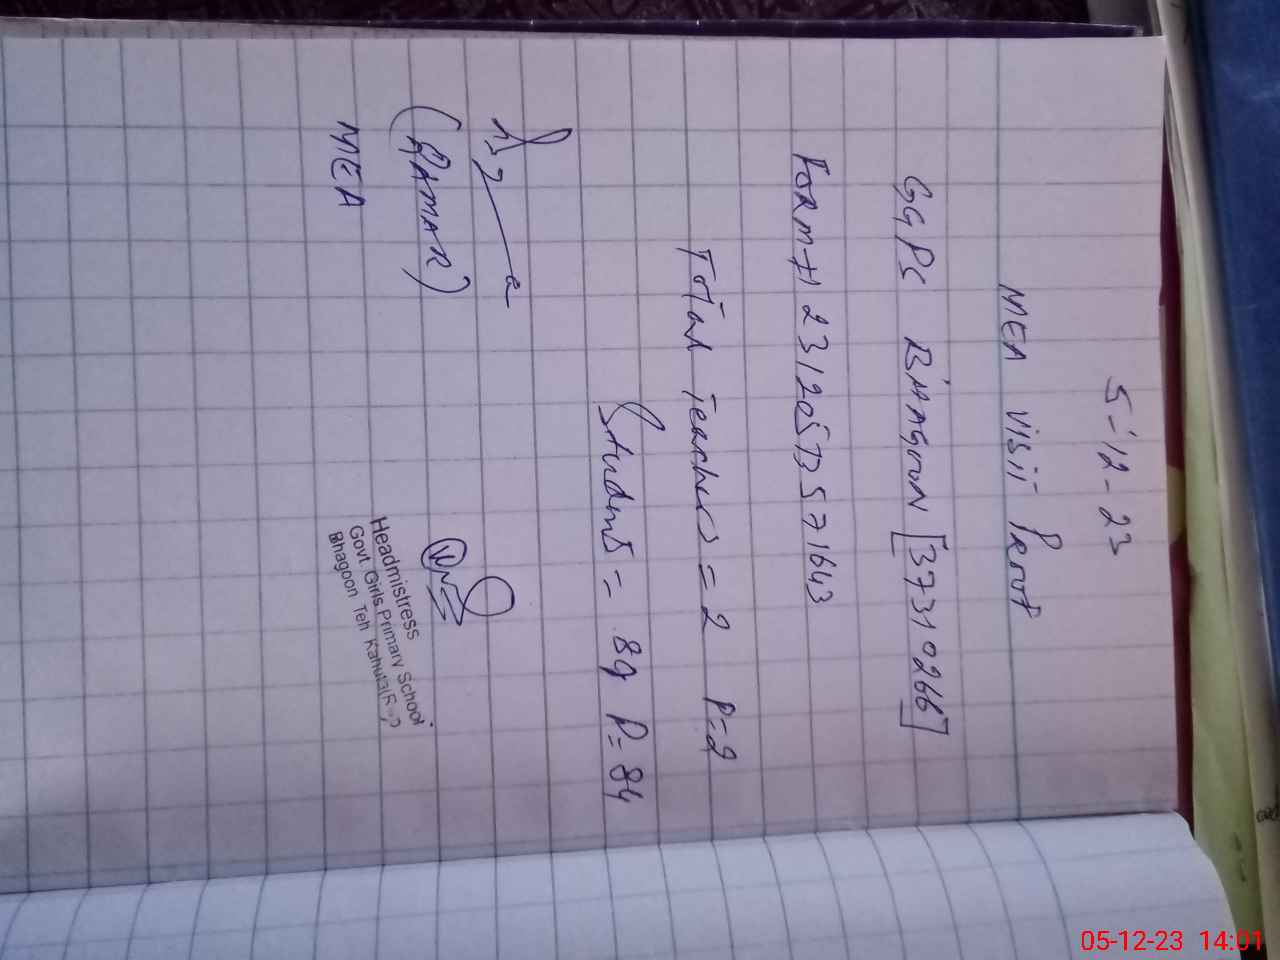 5-12-23
MEA Visit Proof
GGPS BHAGOON [37310266]
FORM # 23120573571643
Total Teachers = 2 P=2
Students = 89 P=84
(QAMAR)
MEA
Headmistress
Govt. Girls Primary School
Bhagoon Teh Kahuta
05-12-23 14:01